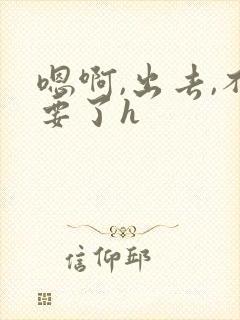 嗯啊,出去,不
要了h
信仰邱